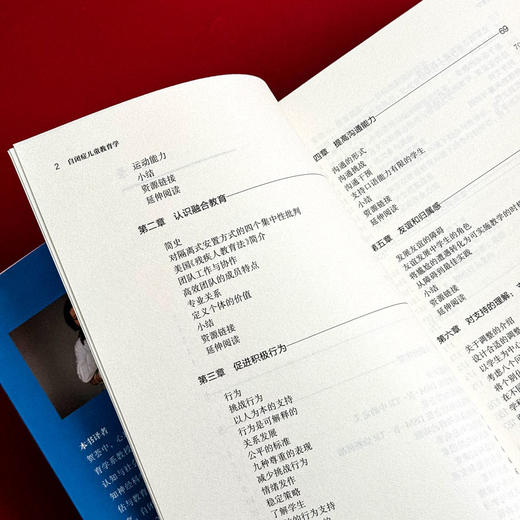 2 自闭症儿童教育学
运动能力
小结
资源链接
延伸阅读
第二章 认识融合教育
简史
对隔离式安置方式的四个集中性批判
美国《残疾人教育法》简介
团队工作与协作
高效团队的成员特点
专业关系
定义个体的价值
小结
资源链接
延伸阅读
第三章 促进积极行为
行为
挑战行为
以人为本的支持
行为是可解释的
关系发展
公平的标准
九种尊重的表现
减少挑战行为
情绪发作
稳定策略
了解学生
69
四章 提高沟通能力
沟通的形式
沟通挑战
沟通干预
支持口语能力有限的学生
小结
延伸阅读
第五章 友谊和归属感
发展友谊的障碍
友谊发展中学生的角色
将尴尬的遭遇转化为可实施教学的时机
从障碍到最佳实践
小结
资源链接
延伸阅读
第六章 对支持的理解、
关于调整的介绍
设计合适的调整
以学生为中心
考虑八个
将个别化
在不同
本书译者
贺荟中，心
育学系教授
认知与社
知神经科
估与教育